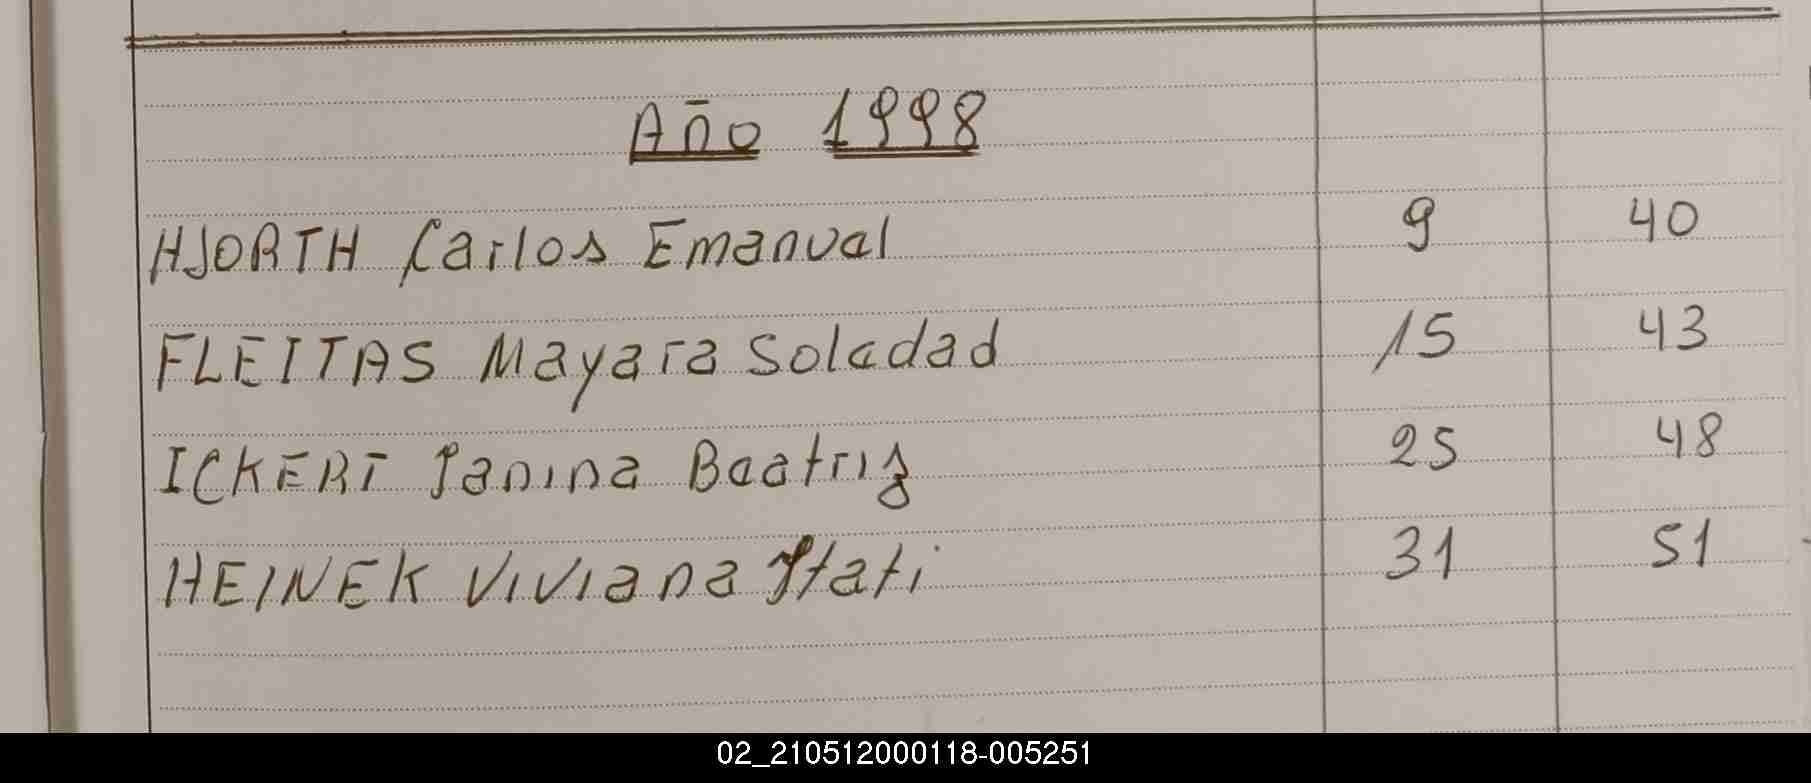 Año 1998
HJORTH Carlos Emanuel 9 40
FLEITAS Mayara Soledad 15 43
ICKERT Janina Beatriz 25 48
HEINEK Viviana Itati 31 51
02_210512000118-005251